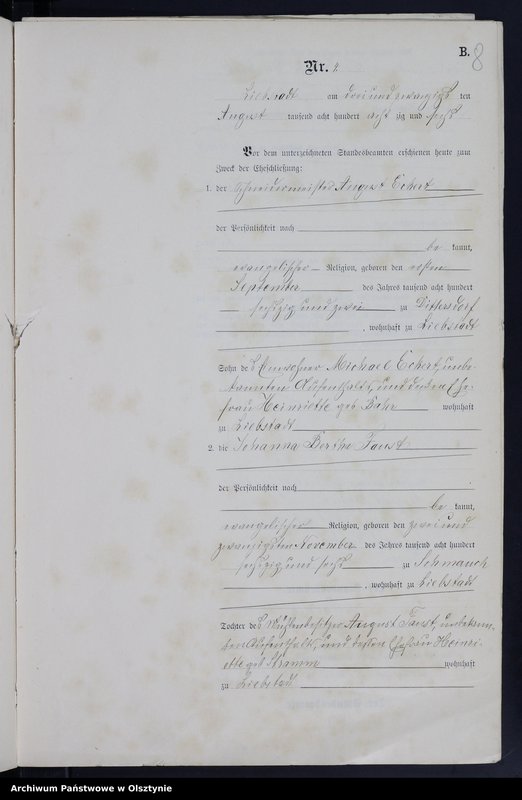 B.
8
Nr. 4.
Liebstadt am drei und zwanzigs ten
August tausend acht hundert acht zig und sechs
Vor dem unterzeichneten Standesbeamten erschienen heute zum
Zweck der Eheschließung:
1. der Schneidermeister August Eckert
der Persönlichkeit nach
be kannt,
evangelischer Religion, geboren den ersten
September des Jahres tausend acht hundert
sechszig und zwei zu Dittersdorf
, wohnhaft zu Liebstadt
Sohn des Einwohner Michael Eckert, unbe-
kannten Aufenthalts, und dessen Ehe-
frau Heinriette geb. Bahr wohnhaft
zu Liebstadt
2. die Johanna Berthe Faust
der Persönlichkeit nach
be kannt,
evangelischer Religion, geboren den zwei und
zwanzigsten November des Jahres tausend acht hundert
sechszig und sechs zu Schmauch
, wohnhaft zu Liebstadt
Tochter des Mühlenbesitzer August Faust, unbekann-
ten Aufenthalts, und dessen Ehefrau Heinri-
ette geb. wohnhaft
zu Liebstadt
Archiwum Państwowe w Olsztynie